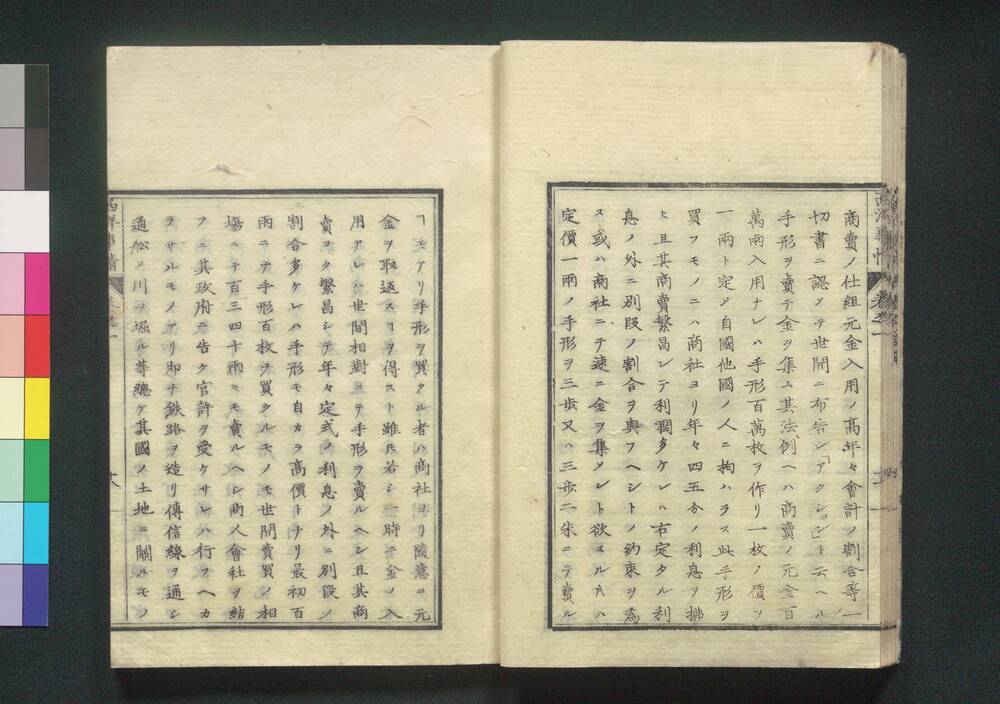 商賣ノ仕組元金入用ノ高年々會計ノ割合等一
切書ニ認メテ世間ニ布告シ「アクション」ト云ヘル
手形ヲ賣テ金ヲ集ム其法例ヘハ商賣ノ元金百
萬兩入用ナレハ手形百萬枚ヲ作リ一枚ノ價ヲ
一兩ト定メ自國他國ノ人ニ拘ハラス此手形ヲ
買フモノニハ商社ヨリ年々四五分ノ利息ヲ拂
ヒ且其商賣繁昌シテ利潤多ケレハ右定タル利
息ノ外ニ別段ノ割合ヲ與フヘシトノ約束ヲ為
ス或ハ商社ニテ速ニ金ヲ集メント欲スル片ハ
定價一兩ノ手形ヲ三歩又ハ三歩二朱ニテ賣ル
ヿモアリ手形ヲ買タル者ハ商社ヨリ隨意ニ元
金ヲ取返スヿヲ得スト雖𪜈若シ一時ニ金ノ入
用アレハ世間相對ニテ手形ヲ賣ルヘシ且其商
賣ヨク繁昌シテ年々定式ノ利息ノ外ニ別段ノ
割合多ケレハ手形モ自カラ高價トナリ最初百
兩ニテ手形百枚ヲ買タルモノモ世間賣買ノ相
塲ニテ百三四十兩ニモ賣ルヘシ商人會社ヲ結
フニ其政府ニ告ケ官許ヲ受ケサレハ行フヘカ
ラサルモノアリ即チ鉄路ヲ造リ傳信線ヲ通シ
通船ノ川ヲ堀ル等總ケ其國ノ土地ニ關ルモノ
西洋事情 卷之一